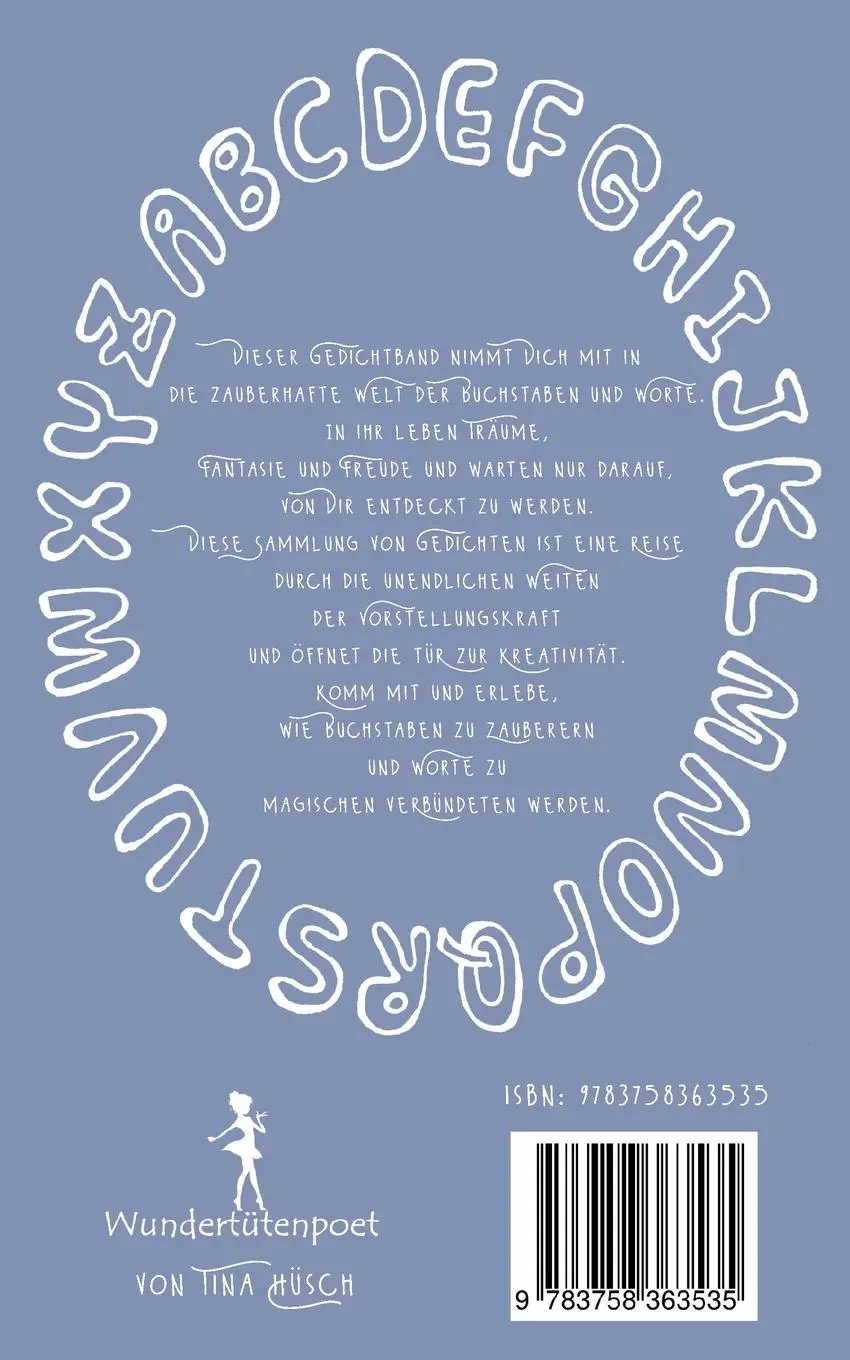 ABCDEFGHIJKLMNOPQRSTUVWXYZ
DIESER GEDICHTBAND NIMMT DICH MIT IN
DIE ZAUBERHAFTE WELT DER BUCHSTABEN UND WORTE.
IN IHR LEBEN TRÄUME,
FANTASIE UND FREUDE UND WARTEN NUR DARAUF,
VON DIR ENTDECKT ZU WERDEN.
DIESE SAMMLUNG VON GEDICHTEN IST EINE REISE
DURCH DIE UNENDLICHEN WEITEN
DER VORSTELLUNGSKRAFT
UND ÖFFNET DIE TÜR ZUR KREATIVITÄT.
KOMM MIT UND ERLEBE,
WIE BUCHSTABEN ZU ZAUBERERN
UND WORTE ZU
MAGISCHEN VERBÜNDETEN WERDEN.
ISBN: 9783758363535
Wundertütenpoet
VON TINA HÜSCH
9 783758 363535